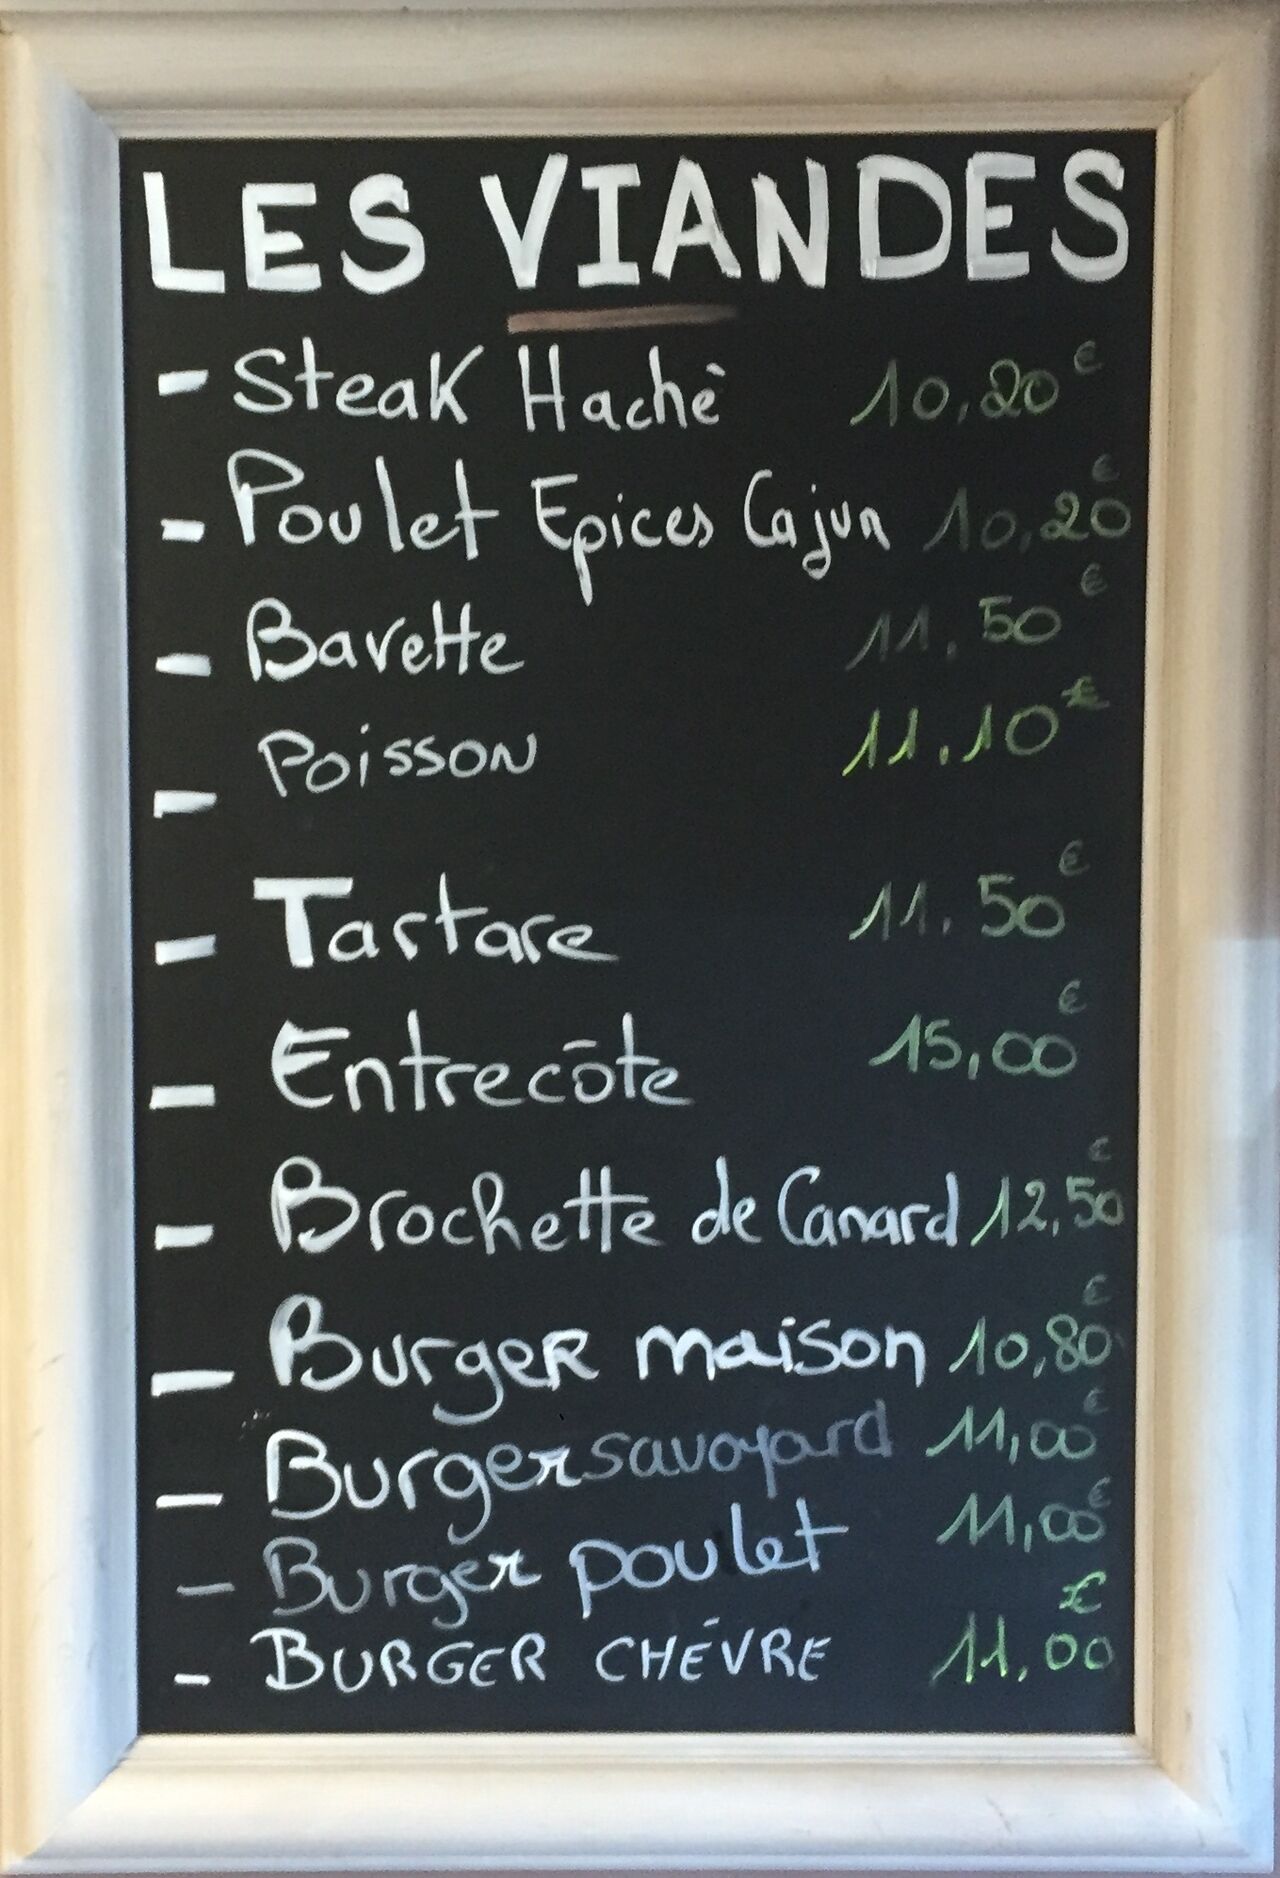 LES VIANDES
- Steak Haché 10,20€
- Poulet Epices Cajun 10,20€
- Bavette 11,50€
- Poisson 11,10€
- Tartare 11,50€
- Entrecôte 15,00€
- Brochette de Canard 12,50€
- Burger maison 10,80€
- Burger savoyard 11,00€
- Burger poulet 11,00€
- BURGER CHÉVRE 11,00€